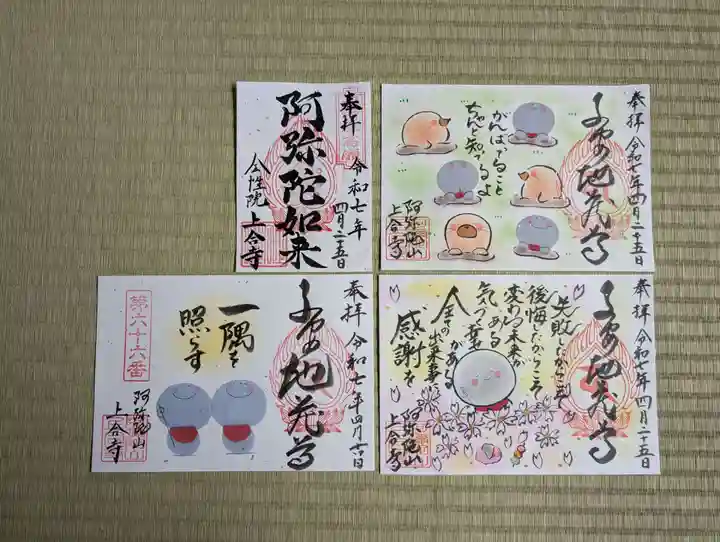 奉拝
令和七年
四月二十五日
阿弥陀如来
上合寺
奉拝 令和七年四月二十五日
地蔵尊
がんばってること
ちゃんと知ってるよ
阿弥陀山
上合寺
奉拝 令和七年四月
地蔵尊
一隅を
照らす
第六十六番
阿弥陀山
上合寺
奉拝 令和七年四月二十五日
地蔵尊
失敗したからこそ
後悔したからこそ
変わる未来が
ある
気づく幸せ
全ての出来事に
感謝を
阿弥陀山
上合寺